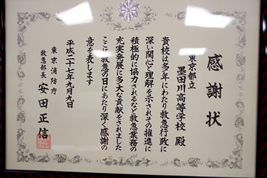 感謝状
東京都立
墨田川高等学校 殿
貴校は多年にわたり救急行政に
深い関心と理解を示されその推進に
積極的に協力されるなど救急業務の
充実発展に多大な貢献をされました
ここに救急の日にあたり深く感謝の
意を表します
平成二十七年九月九日
東京消防庁
救急部長 安田正信